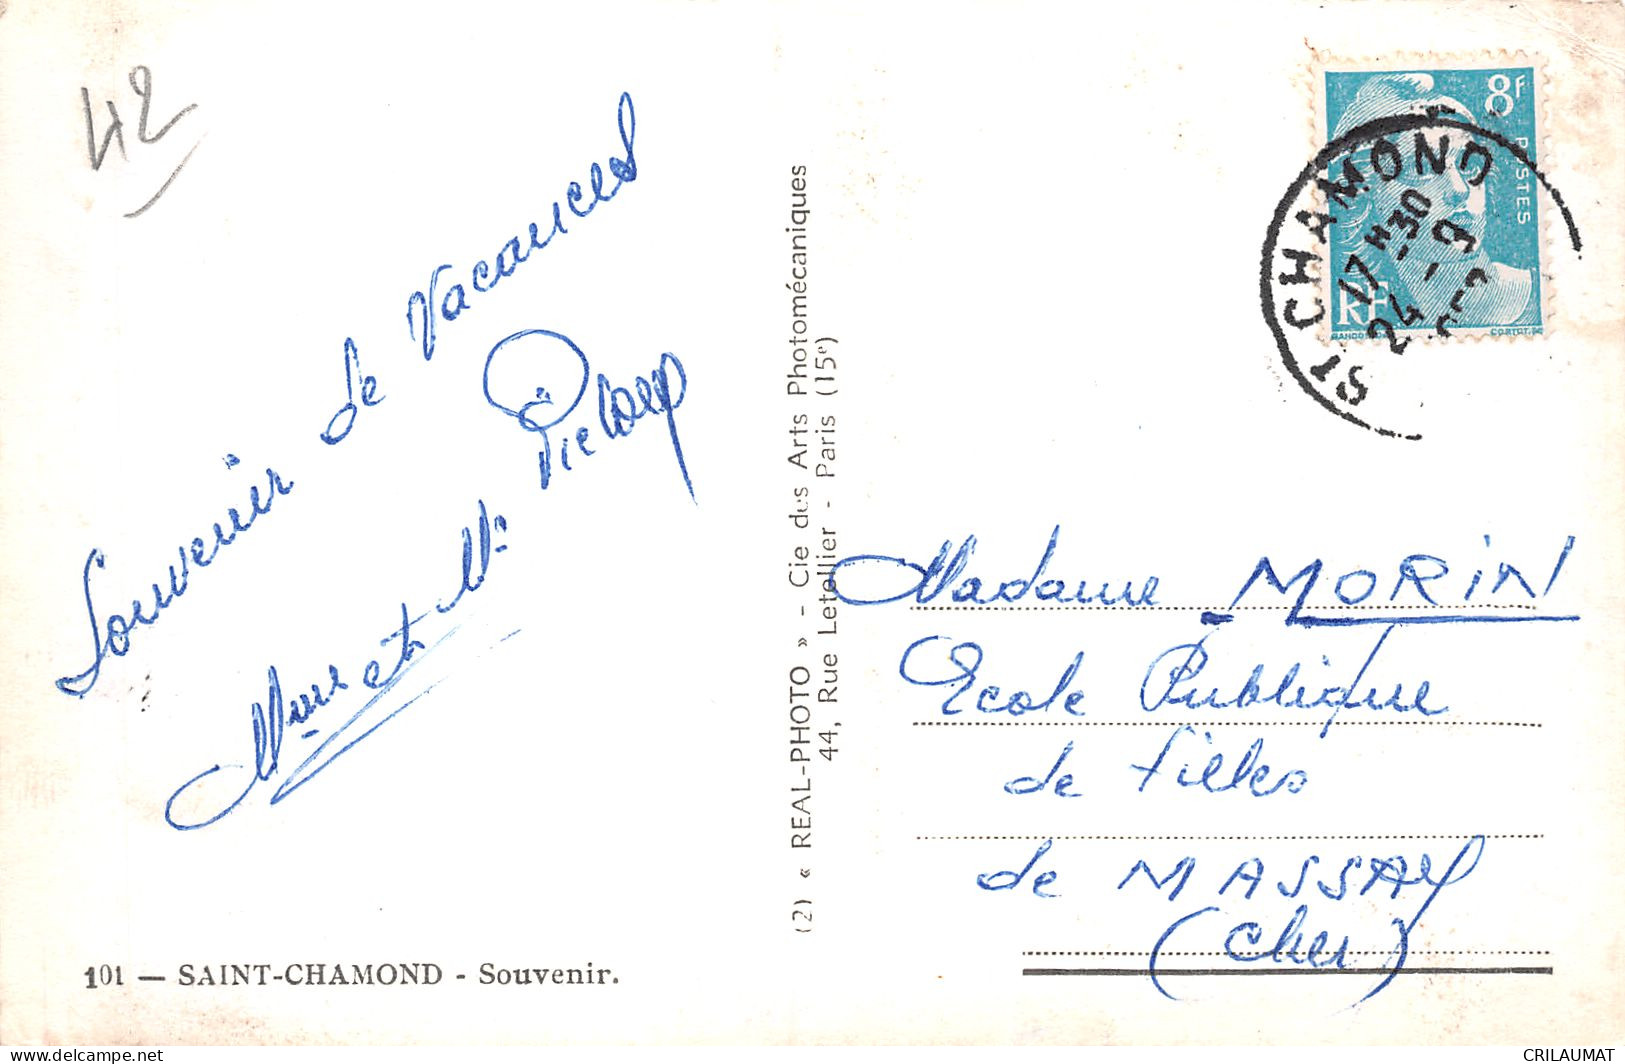 42
Souvenir de Vacances
Mme et Mr
101 — SAINT-CHAMOND - Souvenir.
(2) « REAL-PHOTO » - Cie des Arts Photomécaniques
44, Rue Letellier - Paris (15e)
8F
POSTES
RF
ST CHAMOND
17 H -30
24 - 9
Madame MORIN
Ecole Publique
de filles
de MASSAY
(Cher)
delcampe.net
CRILAUMAT